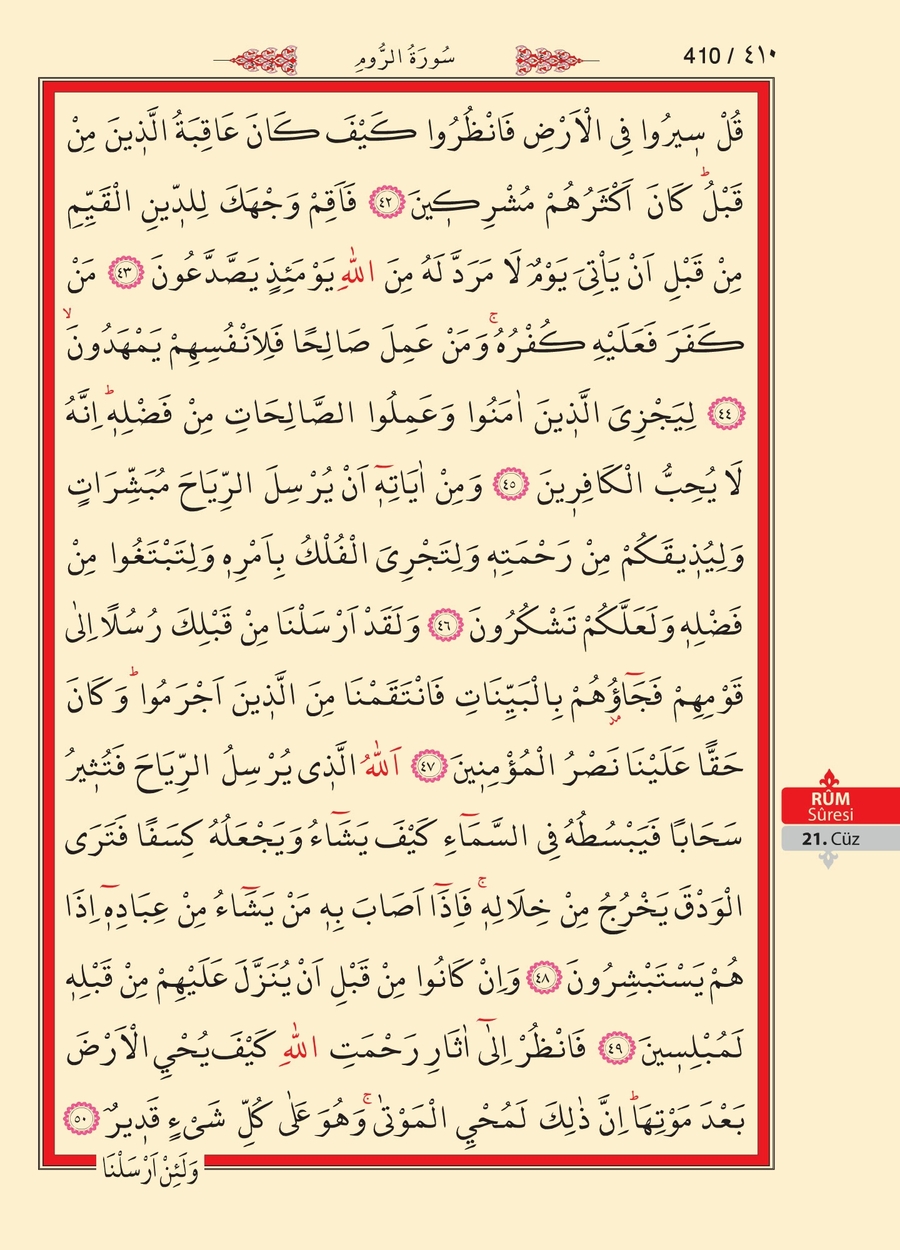 ٤١٠ / 410
سُورَةُ الرُّومِ
قُلْ سٖيرُوا فِى الْاَرْضِ فَانْظُرُوا كَيْفَ كَانَ عَاقِبَةُ الَّذٖينَ مِنْ
قَبْلُؕ كَانَ اَكْثَرُهُمْ مُشْرِكٖينَ ﴿٤٢﴾ فَاَقِمْ وَجْهَكَ لِلدّٖينِ الْقَيِّمِ
مِنْ قَبْلِ اَنْ يَاْتِىَ يَوْمٌ لَا مَرَدَّ لَهُ مِنَ اللّٰهِ يَوْمَئِذٍ يَصَّدَّعُونَ ﴿٤٣﴾ مَنْ
كَفَرَ فَعَلَيْهِ كُفْرُهُۚ وَمَنْ عَمِلَ صَالِحًا فَلِاَنْفُسِهِمْ يَمْهَدُونَۙ
﴿٤٤﴾ لِيَجْزِىَ الَّذٖينَ اٰمَنُوا وَعَمِلُوا الصَّالِحَاتِ مِنْ فَضْلِهٖؕ اِنَّهُ
لَا يُحِبُّ الْكَافِرٖينَ ﴿٤٥﴾ وَمِنْ اٰيَاتِهٖٓ اَنْ يُرْسِلَ الرِّيَاحَ مُبَشِّرَاتٍ
وَلِيُذٖيقَكُمْ مِنْ رَحْمَتِهٖ وَلِتَجْرِىَ الْفُلْكُ بِاَمْرِهٖ وَلِتَبْتَغُوا مِنْ
فَضْلِهٖ وَلَعَلَّكُمْ تَشْكُرُونَ ﴿٤٦﴾ وَلَقَدْ اَرْسَلْنَا مِنْ قَبْلِكَ رُسُلًا اِلٰى
قَوْمِهِمْ فَجَٓاؤُ۫هُمْ بِالْبَيِّنَاتِ فَانْتَقَمْنَا مِنَ الَّذٖينَ اَجْرَمُواؕ وَكَانَ
حَقًّا عَلَيْنَا نَصْرُ الْمُؤْمِنٖينَ ﴿٤٧﴾ اَللّٰهُ الَّذٖى يُرْسِلُ الرِّيَاحَ فَتُثٖيرُ
سَحَابًا فَيَبْسُطُهُ فِى السَّمَٓاءِ كَيْفَ يَشَٓاءُ وَيَجْعَلُهُ كِسَفًا فَتَرَى
الْوَدْقَ يَخْرُجُ مِنْ خِلَالِهٖۚ فَاِذَٓا اَصَابَ بِهٖ مَنْ يَشَٓاءُ مِنْ عِبَادِهٖٓ اِذَا
هُمْ يَسْتَبْشِرُونَ ﴿٤٨﴾ وَاِنْ كَانُوا مِنْ قَبْلِ اَنْ يُنَزَّلَ عَلَيْهِمْ مِنْ قَبْلِهٖ
لَمُبْلِسٖينَ ﴿٤٩﴾ فَانْظُرْ اِلٰٓى اٰثَارِ رَحْمَتِ اللّٰهِ كَيْفَ يُحْيِي الْاَرْضَ
بَعْدَ مَوْتِهَاؕ اِنَّ ذٰلِكَ لَمُحْيِ الْمَوْتٰىۚ وَهُوَ عَلٰى كُلِّ شَىْءٍ قَدٖيرٌ ﴿٥٠﴾
وَلَئِنْ اَرْسَلْنَا
RÛM
Sûresi
21. Cüz